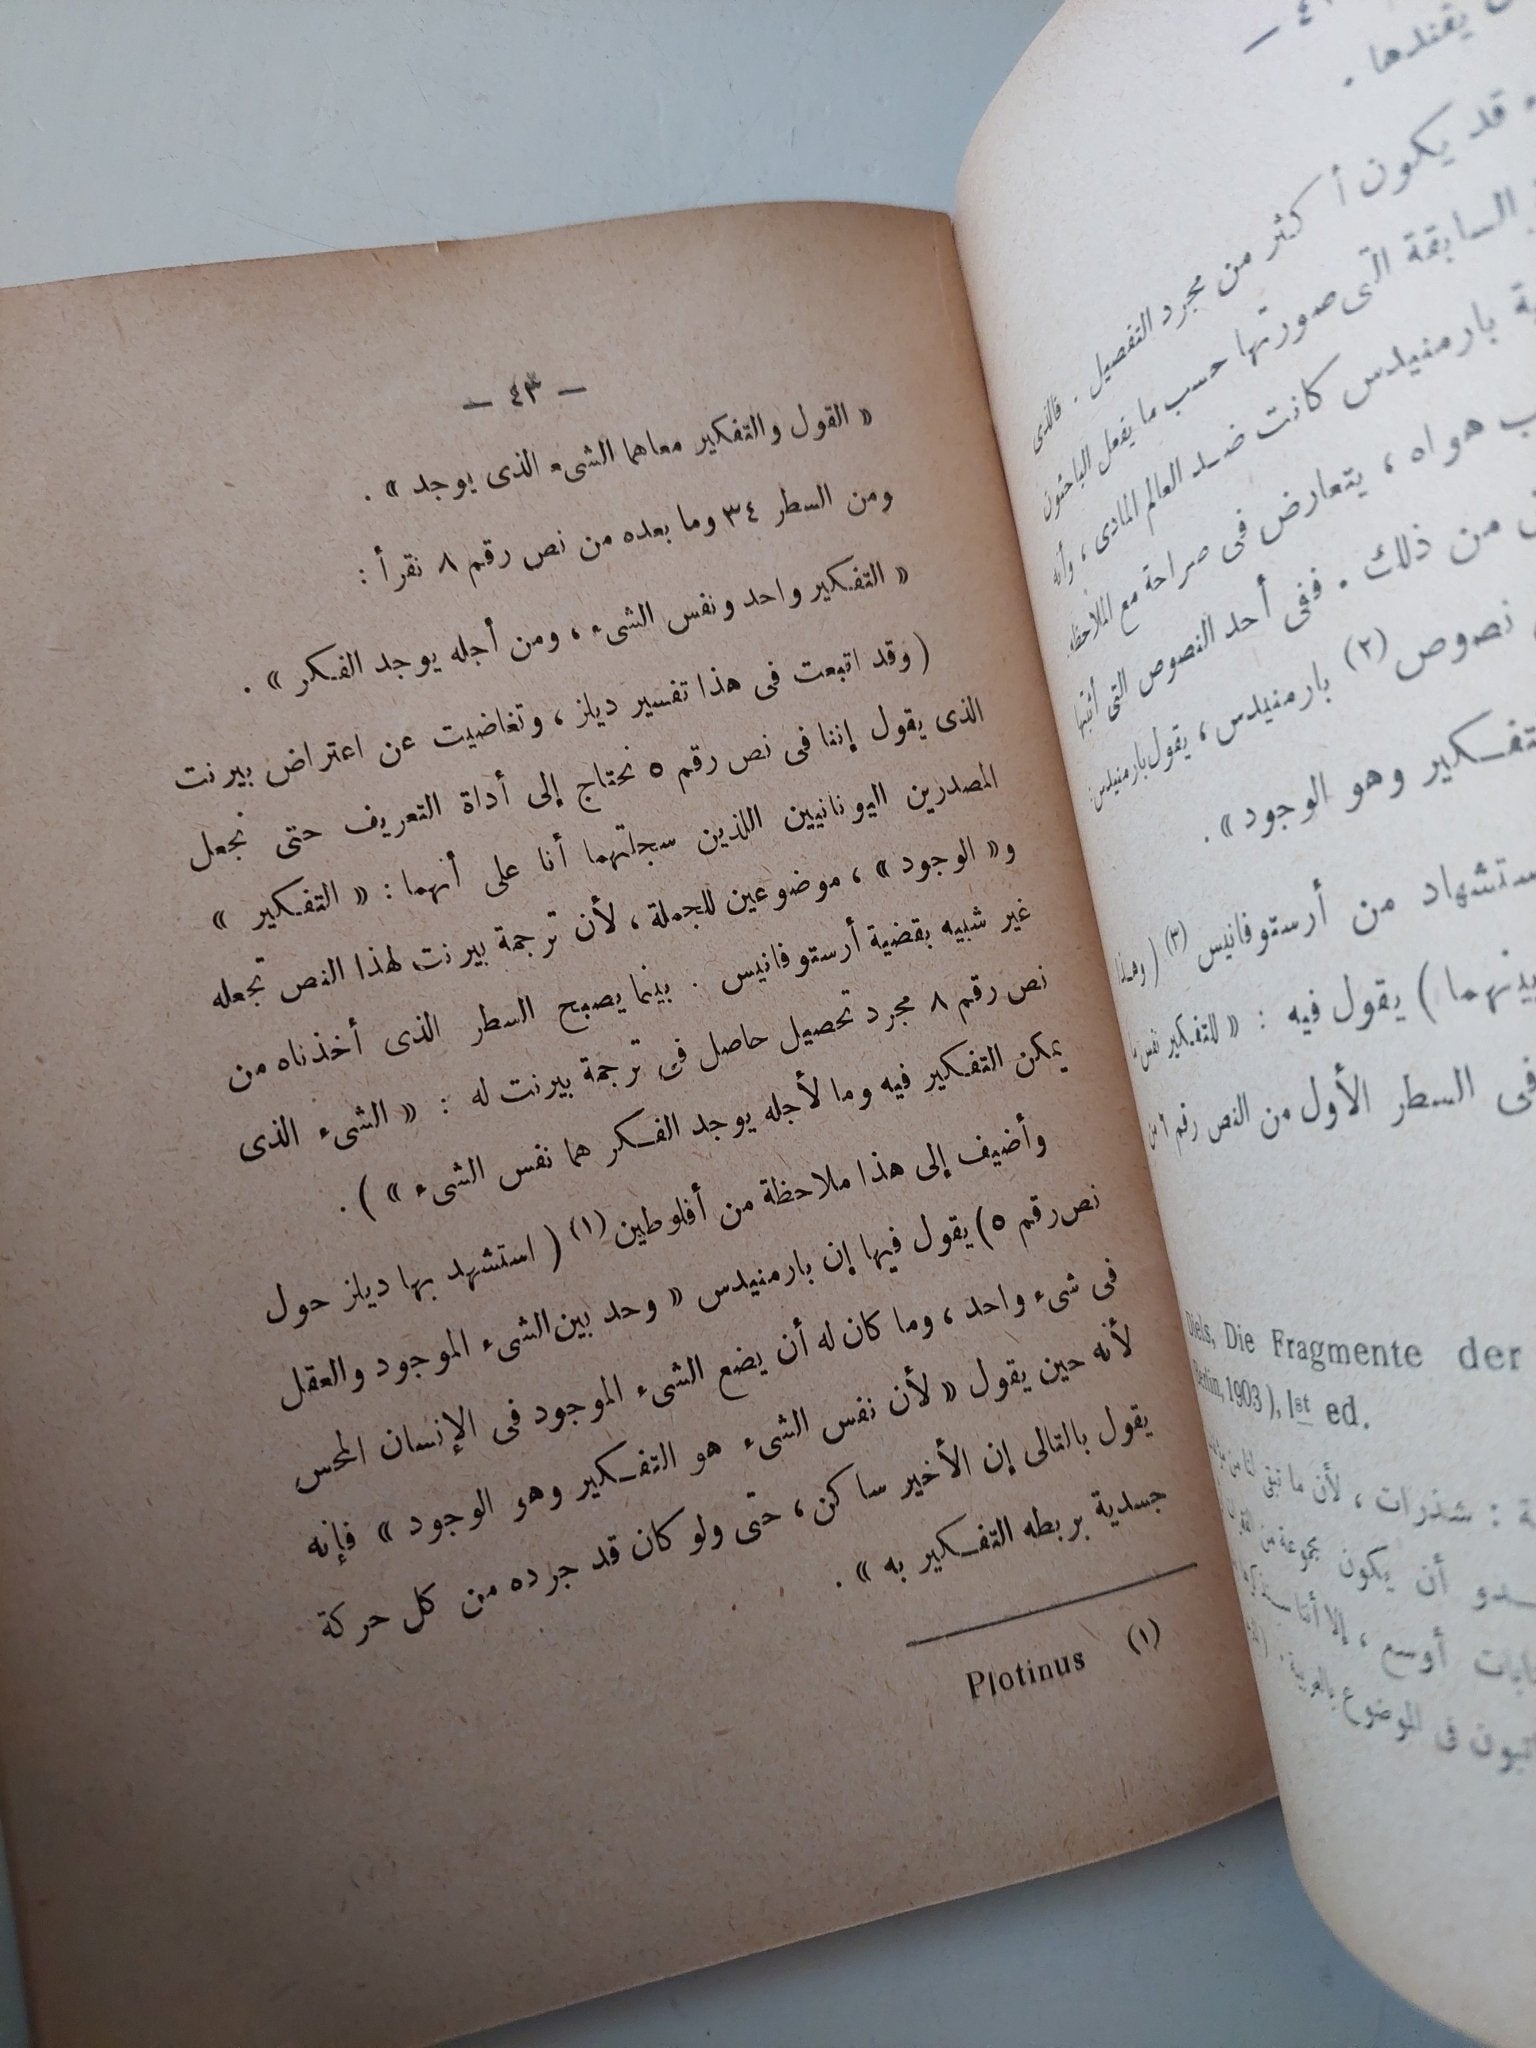 ـ ٤٣ ـ
« القول والتفكير معاهما الشىء الذى يوجد » .
ومن السطر ٣٤ وما بعده من نص رقم ٨ نقرأ :
« التفكير واحد ونفس الشىء ، ومن أجله يوجد الفكر » .
( وقد اتبعت فى هذا تفسير ديلز ، وتغاضيت عن اعتراض بيرنت
الذى يقول إننا فى نص رقم ٥ نحتاج إلى أداة التعريف حتى نجعل
المصدرين اليونانيين اللذين سجلتهما أنا على أنهما : « التفكير »
و« الوجود » ، موضوعين للجملة ، لأن ترجمة بيرنت لهذا النص تجعله
غير شبيه بقضية أرستوفانيس . بينما يصبح السطر الذى أخذناه من
نص رقم ٨ مجرد تحصيل حاصل فى ترجمة بيرنت له : « الشىء الذى
يمكن التفكير فيه وما لأجله يوجد الفكر هما نفس الشىء » ) .
وأضيف إلى هذا ملاحظة من أفلوطين (١) ( استشهد بها ديلز حول
نص رقم ٥) يقول فيها إن بارمنيدس « وحد بين الشىء الموجود والعقل
فى شىء واحد ، وما كان له أن يضع الشىء الموجود فى الإنسان المحس
لأنه حين يقول « لأن نفس الشىء هو التفكير وهو الوجود » فإنه
يقول بالتالى إن الأخير ساكن ، حتى ولو كان قد جرده من كل حركة
جسدية بربطه التفكير به » .
(١) Plotinus
يفندها .
قد يكون أكثر من مجرد التفصيل . فالذى
السابقة التى صورتها حسب ما يفعل الباحثون
بارمنيدس كانت ضد العالم المادى ، وأنه
هواه ، يتعارض فى صراحة مع الملاحظة
من ذلك . ففى أحد النصوص التى أثبتها
نصوص (٢) بارمنيدس ، يقول بارمنيدس :
وهو الوجود » .
من أرستوفانيس (٣) ( وهذا
بينهما ) يقول فيه : « للتفكير نفس
فى السطر الأول من النص رقم ٦ من
Diels, Die Fragmente der
Berlin, 1903 ), 1st ed.
: شذرات ، لأن ما تبقى لنا من
أن يكون مجموعة من
أوسع ، إلا أننا
فى الموضوع بالعربية .